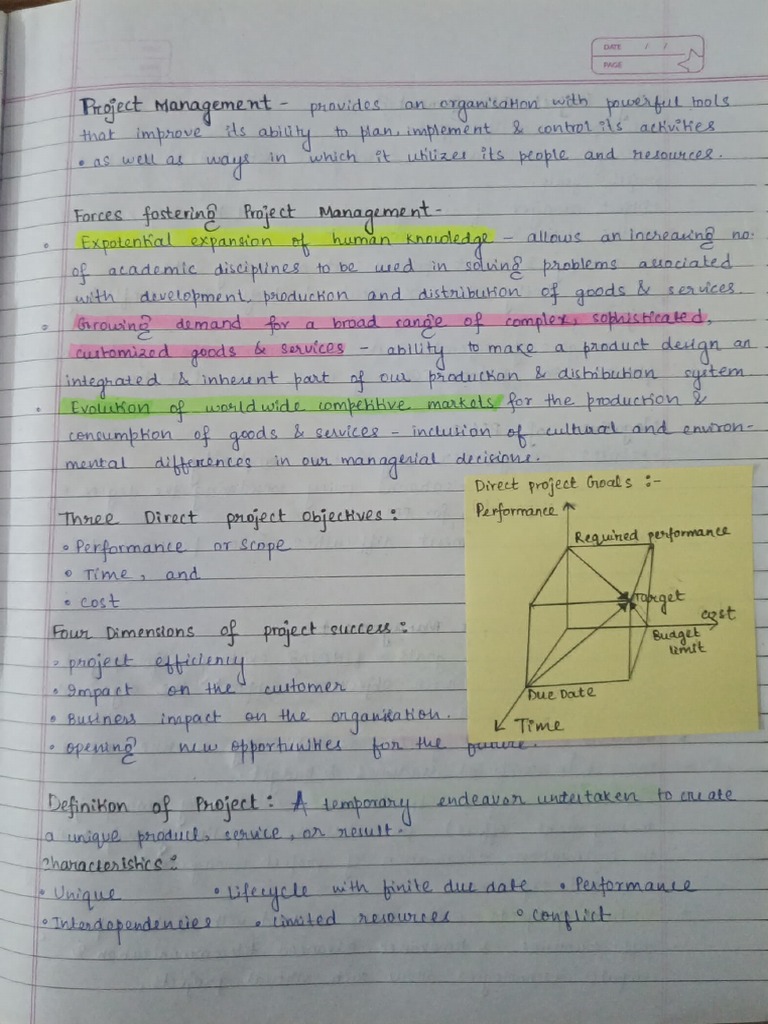 DATE / /
PAGE
Project Management - provides an organisation with powerful tools
that improve its ability to plan, implement & control its activities
• as well as ways in which it utilizes its people and resources.
Forces fostering Project Management -
• Expotential expansion of human knowledge - allows an increasing no.
of academic disciplines to be used in solving problems associated
with development, production and distribution of goods & services.
• Growing demand for a broad range of complex, sophisticated,
customized goods & services - ability to make a product design an
integrated & inherent part of our production & distribution system
• Evolution of worldwide competitive markets for the production &
consumption of goods & services - inclusion of cultural and environ-
mental differences in our managerial decisions.
Three Direct project objectives :
• Performance or scope
• Time, and
• cost
Four Dimensions of project success :
• project efficiency
• Impact on the customer
• Business impact on the organisation.
• opening new opportunities for the future.
Direct project Goals :-
Performance
Required performance
Target
cost
Budget
limit
Due Date
Time
Definition of Project : A temporary endeavor undertaken to create
a unique product, service, or result.
Characteristics :
• Unique • Lifecycle with finite due date • Performance
• Interdependencies • Limited resources • Conflict